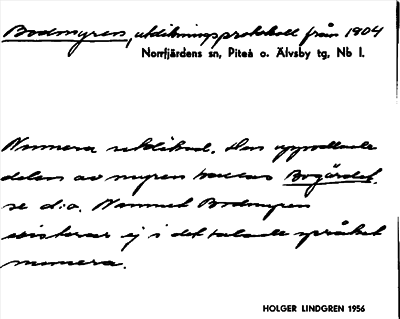 Bodmyren, utdikningsprotokoll från 1904
Norrfjärdens sn, Piteå o. Älvsby tg, Nb l.
Numera utdikad. Den uppodlade
delen av myren kallas Bogärdet,
se d:o. Namnet Bodmyren
existerar ej i det talade språket
numera.
HOLGER LINDGREN 1956